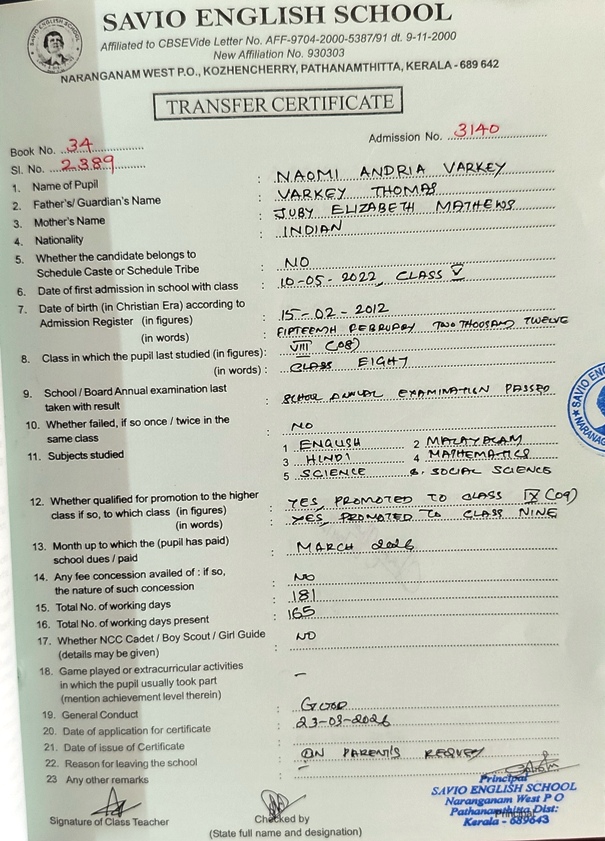 SAVIO ENGLISH SCHOOL
Affiliated to CBSEVide Letter No. AFF-9704-2000-5387/91 dt. 9-11-2000
New Affiliation No. 930303
NARANGANAM WEST P.O., KOZHENCHERRY, PATHANAMTHITTA, KERALA - 689 642
TRANSFER CERTIFICATE
Book No. 34
Admission No. 3140
Sl. No. 2389
1. Name of Pupil : NAOMI ANDRIA VARKEY
2. Father's/ Guardian's Name : VARKEY THOMAS
3. Mother's Name : JUBY ELIZABETH MATHEWS
4. Nationality : INDIAN
5. Whether the candidate belongs to
Schedule Caste or Schedule Tribe : NO
6. Date of first admission in school with class : 10-05-2022, CLASS V
7. Date of birth (in Christian Era) according to
Admission Register (in figures) : 15-02-2012
(in words) FIFTEENTH FEBRUARY TWO THOUSAND TWELVE
8. Class in which the pupil last studied (in figures): VIII (08)
(in words) : CLASS EIGHT
9. School / Board Annual examination last
taken with result : SCHOOL ANNUAL EXAMINATION PASSED
10. Whether failed, if so once / twice in the
same class : NO
11. Subjects studied : 1 ENGLISH 2 MALAYALAM
3 HINDI 4 MATHEMATICS
5 SCIENCE 6. SOCIAL SCIENCE
12. Whether qualified for promotion to the higher
class if so, to which class (in figures) : YES, PROMOTED TO CLASS IX (09)
(in words) : YES, PROMOTED TO CLASS NINE
13. Month up to which the (pupil has paid)
school dues / paid : MARCH 2026
14. Any fee concession availed of : if so,
the nature of such concession : NO
15. Total No. of working days : 181
16. Total No. of working days present : 165
17. Whether NCC Cadet / Boy Scout / Girl Guide : NO
(details may be given)
18. Game played or extracurricular activities
in which the pupil usually took part : –
(mention achievement level therein)
19. General Conduct : GOOD
20. Date of application for certificate : 23-03-2026
21. Date of issue of Certificate :
22. Reason for leaving the school : ON PARENT'S
23 Any other remarks : –
Principal
SAVIO ENGLISH SCHOOL
Naranganam West P O
Pathanamthitta Dist:
Kerala - 689643
Principal
Signature of Class Teacher
Checked by
(State full name and designation)